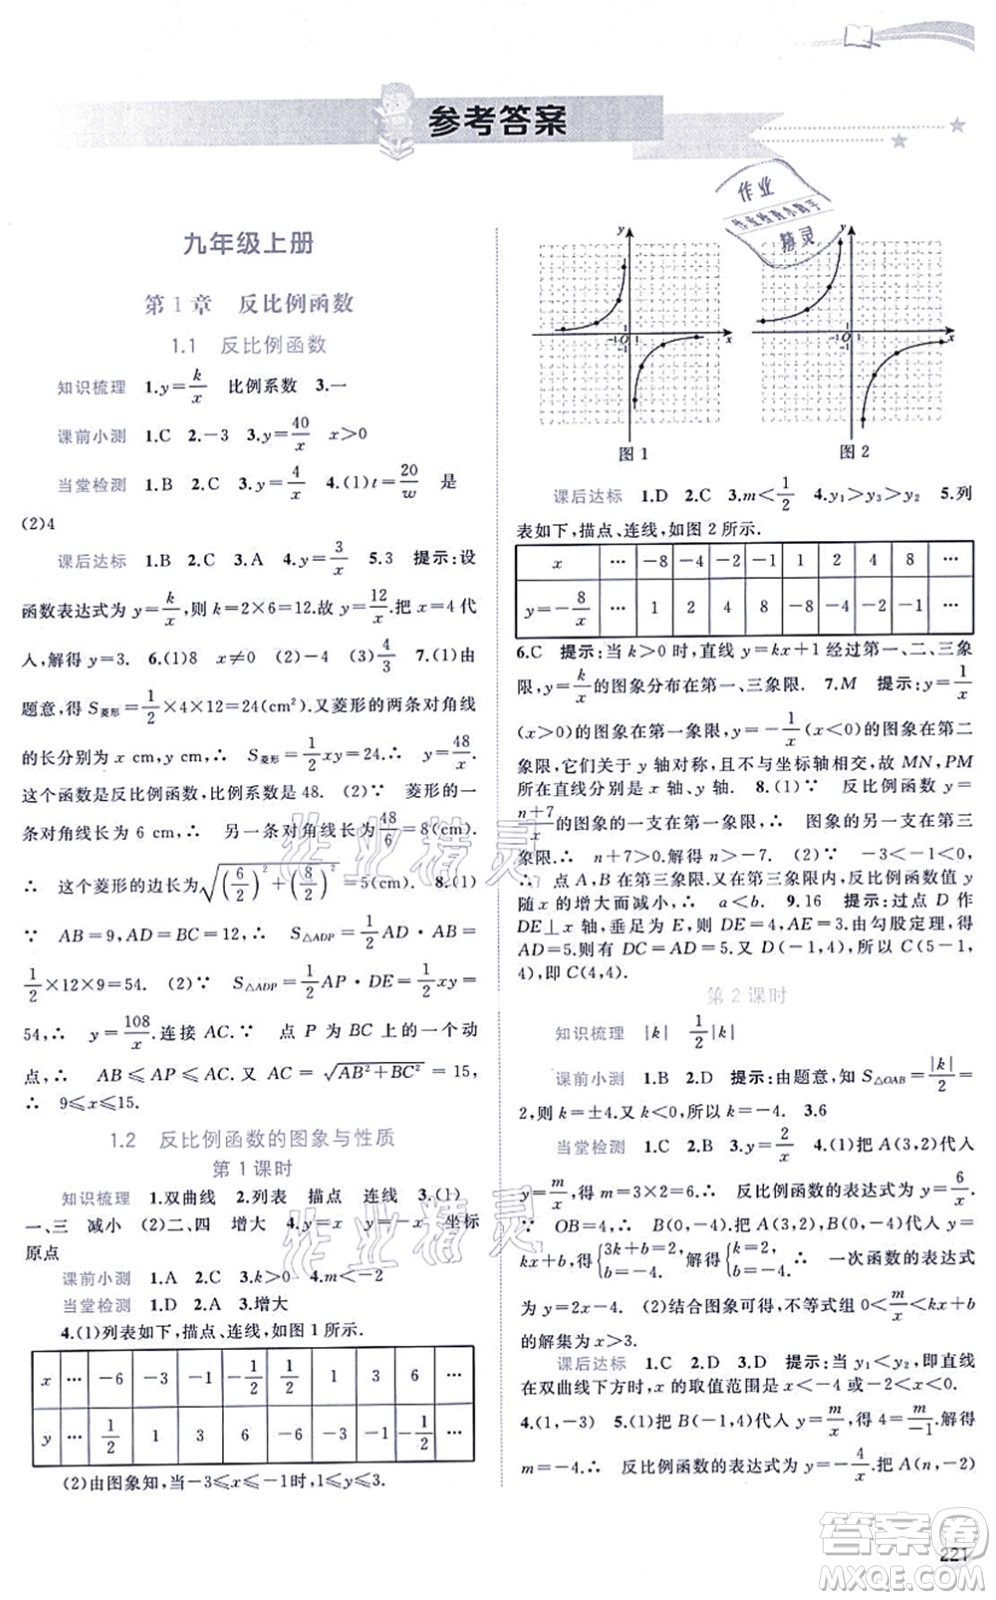 参考答案
九年级上册
第1章 反比例函数
1.1 反比例函数
知识梳理 1.y=k/x 比例系数 3.一
课前小测 1.C 2.-3 3.y=40/x x>0
当堂检测 1.B 2.C 3.y=4/x 4.(1)t=20/w 是
(2)4
课后达标 1.B 2.C 3.A 4.y=3/x 5.3 提示:设
函数表达式为 y=k/x,则 k=2×6=12.故 y=12/x.把 x=4代
入,解得 y=3. 6.(1)8 x≠0 (2)-4 (3)4/3 7.(1)由
题意,得 S菱形=1/2×4×12=24(cm²).又菱形的两条对角线
的长分别为 x cm,y cm,∴ S菱形=1/2xy=24.∴ y=48/x.
这个函数是反比例函数,比例系数是 48. (2)∵ 菱形的一
条对角线长为 6 cm,∴ 另一条对角线长为48/6=8(cm).
∴ 这个菱形的边长为√((6/2)²+(8/2)²)=5(cm). 8.(1)
∵ AB=9,AD=BC=12,∴ S△ADP=1/2AD·AB=
1/2×12×9=54. (2)∵ S△ADP=1/2AP·DE=1/2xy=
54,∴ y=108/x.连接 AC.∵ 点 P 为 BC 上的一个动
点,∴ AB≤AP≤AC.∵ AC=√(AB²+BC²)=15,
∴ 9≤x≤15.
1.2 反比例函数的图象与性质
第1课时
知识梳理 1.双曲线 2.列表 描点 连线 3.(1)
一、三 减小 (2)二、四 增大 4.y=x y=-x 坐标
原点
课前小测 1.A 2.C 3.k>0 4.m<-2
当堂检测 1.D 2.A 3.增大
4.(1)列表如下,描点、连线,如图1所示.
x … -6 -3 -1 -1/2 1/2 1 3 6 …
y … 1/2 1 3 6 -6 -3 -1 -1/2 …
(2)由图象知,当-3≤x≤-1时,1≤y≤3.
y
-1 O 1 x
-1
图1
y
-1 O 1 x
-1
图2
课后达标 1.D 2.C 3.m<1/2 4.y₁>y₃>y₂ 5.列
表如下,描点、连线,如图2所示.
x … -8 -4 -2 -1 1 2 4 8 …
y=-8/x … 1 2 4 8 -8 -4 -2 -1 …
6.C 提示:当 k>0时,直线 y=kx+1经过第一、二、三象
限,y=k/x的图象分布在第一、三象限. 7.M 提示:y=1/x
(x>0)的图象在第一象限,y=-1/x(x>0)的图象在第四
象限,它们关于 x 轴对称,且与坐标轴不相交,故 MN,PM
所在直线分别是 x 轴、y 轴. 8.(1)∵ 反比例函数 y=
n+7/x的图象的一支在第一象限,∴ 图象的另一支在第三
象限.∴ n+7>0.解得 n>-7. (2)∵ -3<-1<0,
∴ 点 A,B 在第三象限.又在第三象限内,反比例函数值 y
随 x 的增大而减小,∴ a<b. 9.16 提示:过点 D 作
DE⊥x 轴,垂足为 E,则 DE=4,AE=3.由勾股定理,得
AD=5.则有 DC=AD=5.又 D(-1,4),所以 C(5-1,
4),即 C(4,4).
第2课时
知识梳理 |k| 1/2|k|
课前小测 1.B 2.D 提示:由题意,知 S△OAB=|k|/2=
2,则 k=±4.又 k<0,所以 k=-4. 3.6
当堂检测 1.C 2.B 3.y=2/x 4.(1)把 A(3,2)代入
y=m/x,得 m=3×2=6.∴ 反比例函数的表达式为 y=6/x.
∵ OB=4,∴ B(0,-4).把 A(3,2),B(0,-4)代入 y=
kx+b,得{3k+b=2,b=-4.解得{k=2,b=-4.∴ 一次函数的表达式
为 y=2x-4. (2)结合图象可得,不等式组 0<m/x<kx+b
的解集为 x>3.
课后达标 1.C 2.D 3.D 提示:当 y₁<y₂,即直线
在双曲线下方时,x 的取值范围是 x<-4或 0<x<2.
4.(1,-3) 5.(1)把 B(-1,4)代入 y=m/x,得 4=m/-1.解得
m=-4.∴ 反比例函数的表达式为 y=-4/x.把 A(n,-2)
221
作业
作业检查小助手
精灵
作业精灵
作业精灵
答案圈
MXQE.COM